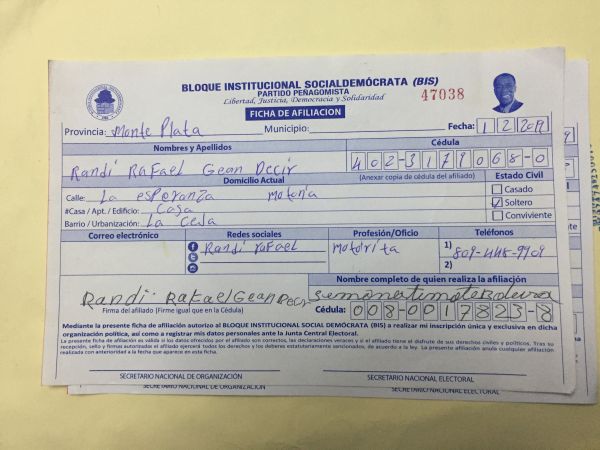 BLOQUE INSTITUCIONAL SOCIALDEMÓCRATA (BIS)
PARTIDO PEÑAGOMISTA
Libertad, Justicia, Democracia y Solidaridad
47038
FICHA DE AFILIACION
Provincia: Monte Plata Municipio: Fecha: 1 2 2019
Nombres y Apellidos Cédula
Randi RaFael Gean Decir 402-3179068-0
Domicilio Actual (Anexar copia de cédula del afiliado) Estado Civil
Calle: La esperanza Casado
#Casa / Apt. / Edificio: Casa Soltero
Barrio / Urbanización: La Ceda Conviviente
Correo electrónico Redes sociales Profesión/Oficio Teléfonos
Randi raFael Motorita 1) 809-448-9909
2)
Nombre completo de quien realiza la afiliación
Randi. RaFael Gean Decir
Firma del afiliado (Firme igual que en la Cédula) Cédula: 008-0017823-8
Mediante la presente ficha de afiliación autorizo al BLOQUE INSTITUCIONAL SOCIAL DEMÓCRATA (BIS) a realizar mi inscripción única y exclusiva en dicha
organización política, así como a registrar mis datos personales ante la Junta Central Electoral.
La presente ficha de afiliación es válida si los datos ofrecidos por el afiliado son correctos, las declaraciones veraces y si el afiliado tiene el disfrute de sus derechos civiles y políticos. Tras su
recepción, sello y firmas autorizadas el afiliado ejercerá todos los derechos y los deberes estatutariamente sancionados, de acuerdo a la ley. La presente afiliación anula cualquier afiliación
realizada con anterioridad a la fecha que aparece en esta ficha.
SECRETARIO NACIONAL DE ORGANIZACIÓN SECRETARIO NACIONAL ELECTORAL
SECRETARIO NACIONAL DE ORGANIZACIÓN SECRETARIO NACIONAL ELECTORAL